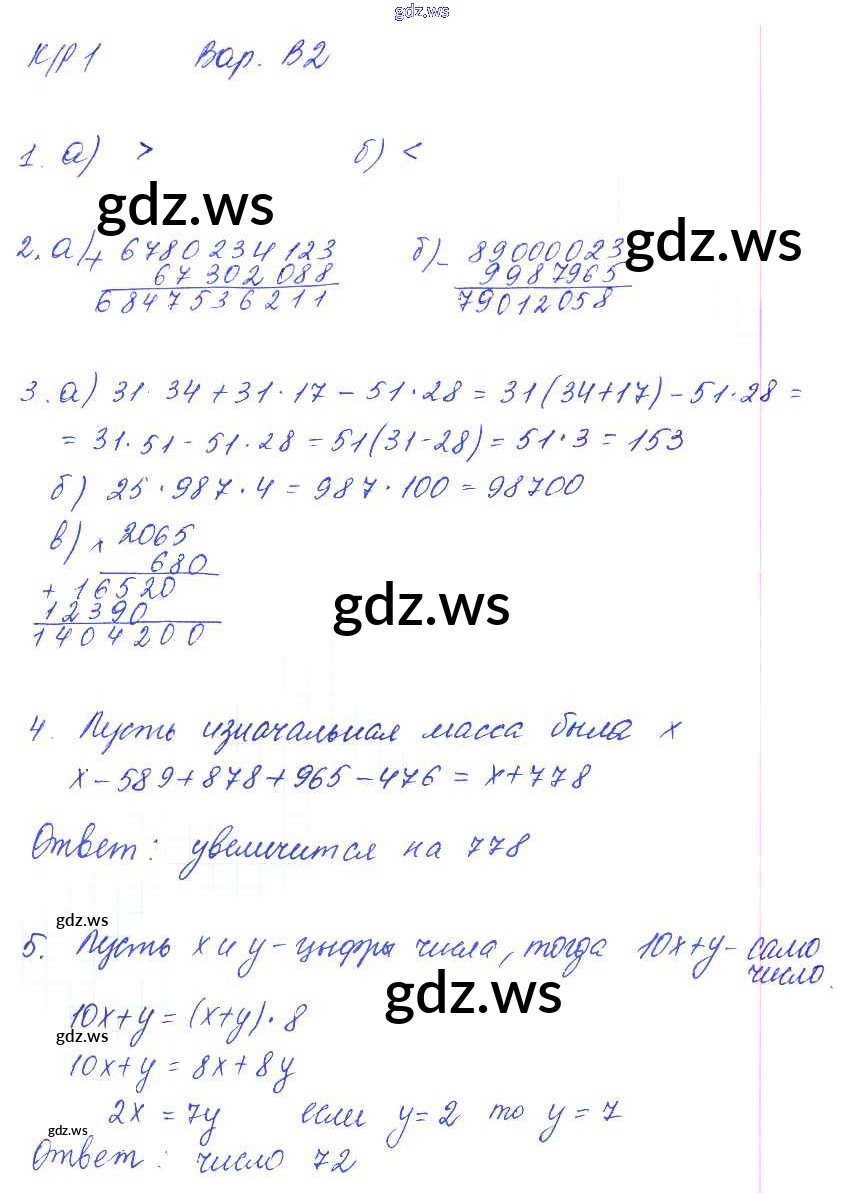 gdz.ws
К/Р 1 Вар. В2
1. а) > б) <
gdz.ws gdz.ws
2. а) + 6780234123 б) - 89000023
67302088 9987965
6847536211 79012058
3. а) 31 · 34 + 31 · 17 - 51 · 28 = 31(34+17) - 51 · 28 =
= 31 · 51 - 51 · 28 = 51(31-28) = 51 · 3 = 153
б) 25 · 987 · 4 = 987 · 100 = 98700
в) x 2065
680
+ 16520
12390
1404200
gdz.ws
4. Пусть изначальная масса была x
x - 589 + 878 + 965 - 476 = x + 778
Ответ: увеличится на 778
gdz.ws
5. Пусть x и y - цыфры числа, тогда 10x+y - само
число.
gdz.ws
10x+y = (x+y) · 8
gdz.ws
10x+y = 8x+8y
2x = 7y если y = 2 то y = 7
gdz.ws
Ответ: число 72